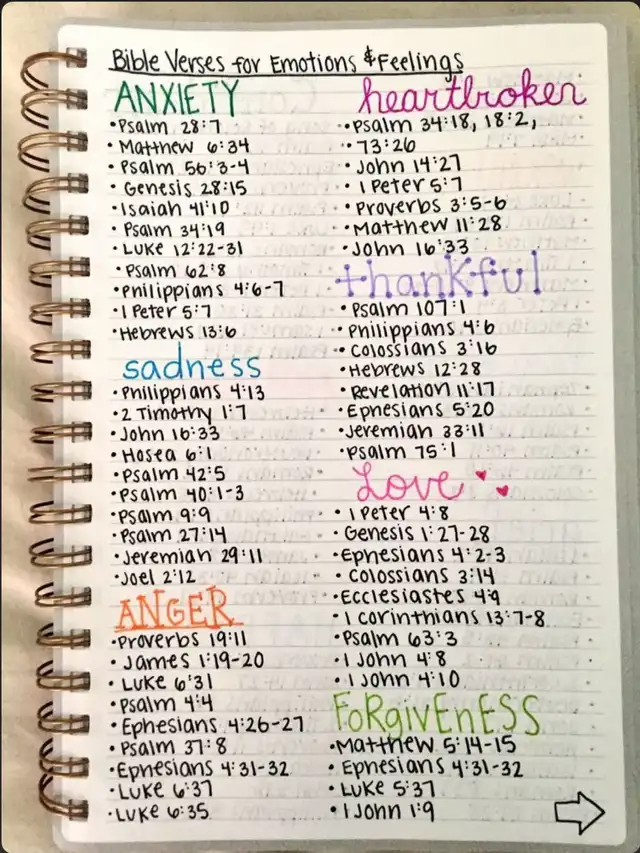 Bible Verses for Emotions & Feelings
ANXIETY
•Psalm 28:7
•Matthew 6:34
•Psalm 56:3-4
•Genesis 28:15
•Isaiah 41:10
•Psalm 34:19
•Luke 12:22-31
•Psalm 62:8
•Philippians 4:6-7
•1 Peter 5:7
•Hebrews 13:6
sadness
•Philippians 4:13
•2 Timothy 1:7
•John 16:33
•Hosea 6:1
•Psalm 42:5
•Psalm 40:1-3
•Psalm 9:9
•Psalm 27:14
•Jeremiah 29:11
•Joel 2:12
ANGER
•Proverbs 19:11
•James 1:19-20
•Luke 6:31
•Psalm 4:4
•Ephesians 4:26-27
•Psalm 37:8
•Ephesians 4:31-32
•Luke 6:37
•Luke 6:35
heartbroken
•Psalm 34:18, 18:2,
•73:26
•John 14:27
•1 Peter 5:7
•Proverbs 3:5-6
•Matthew 11:28
•John 16:33
thankful
•Psalm 107:1
•Philippians 4:6
•Colossians 3:16
•Hebrews 12:28
•Revelation 11:17
•Ephesians 5:20
•Jeremiah 33:11
•Psalm 75:1
Love
•1 Peter 4:8
•Genesis 1:27-28
•Ephesians 4:2-3
•Colossians 3:14
•Ecclesiastes 4:9
•1 Corinthians 13:7-8
•Psalm 63:3
•1 John 4:8
•1 John 4:10
FoRgivEnESS
•Matthew 5:14-15
•Ephesians 4:31-32
•Luke 5:37
•1 John 1:9